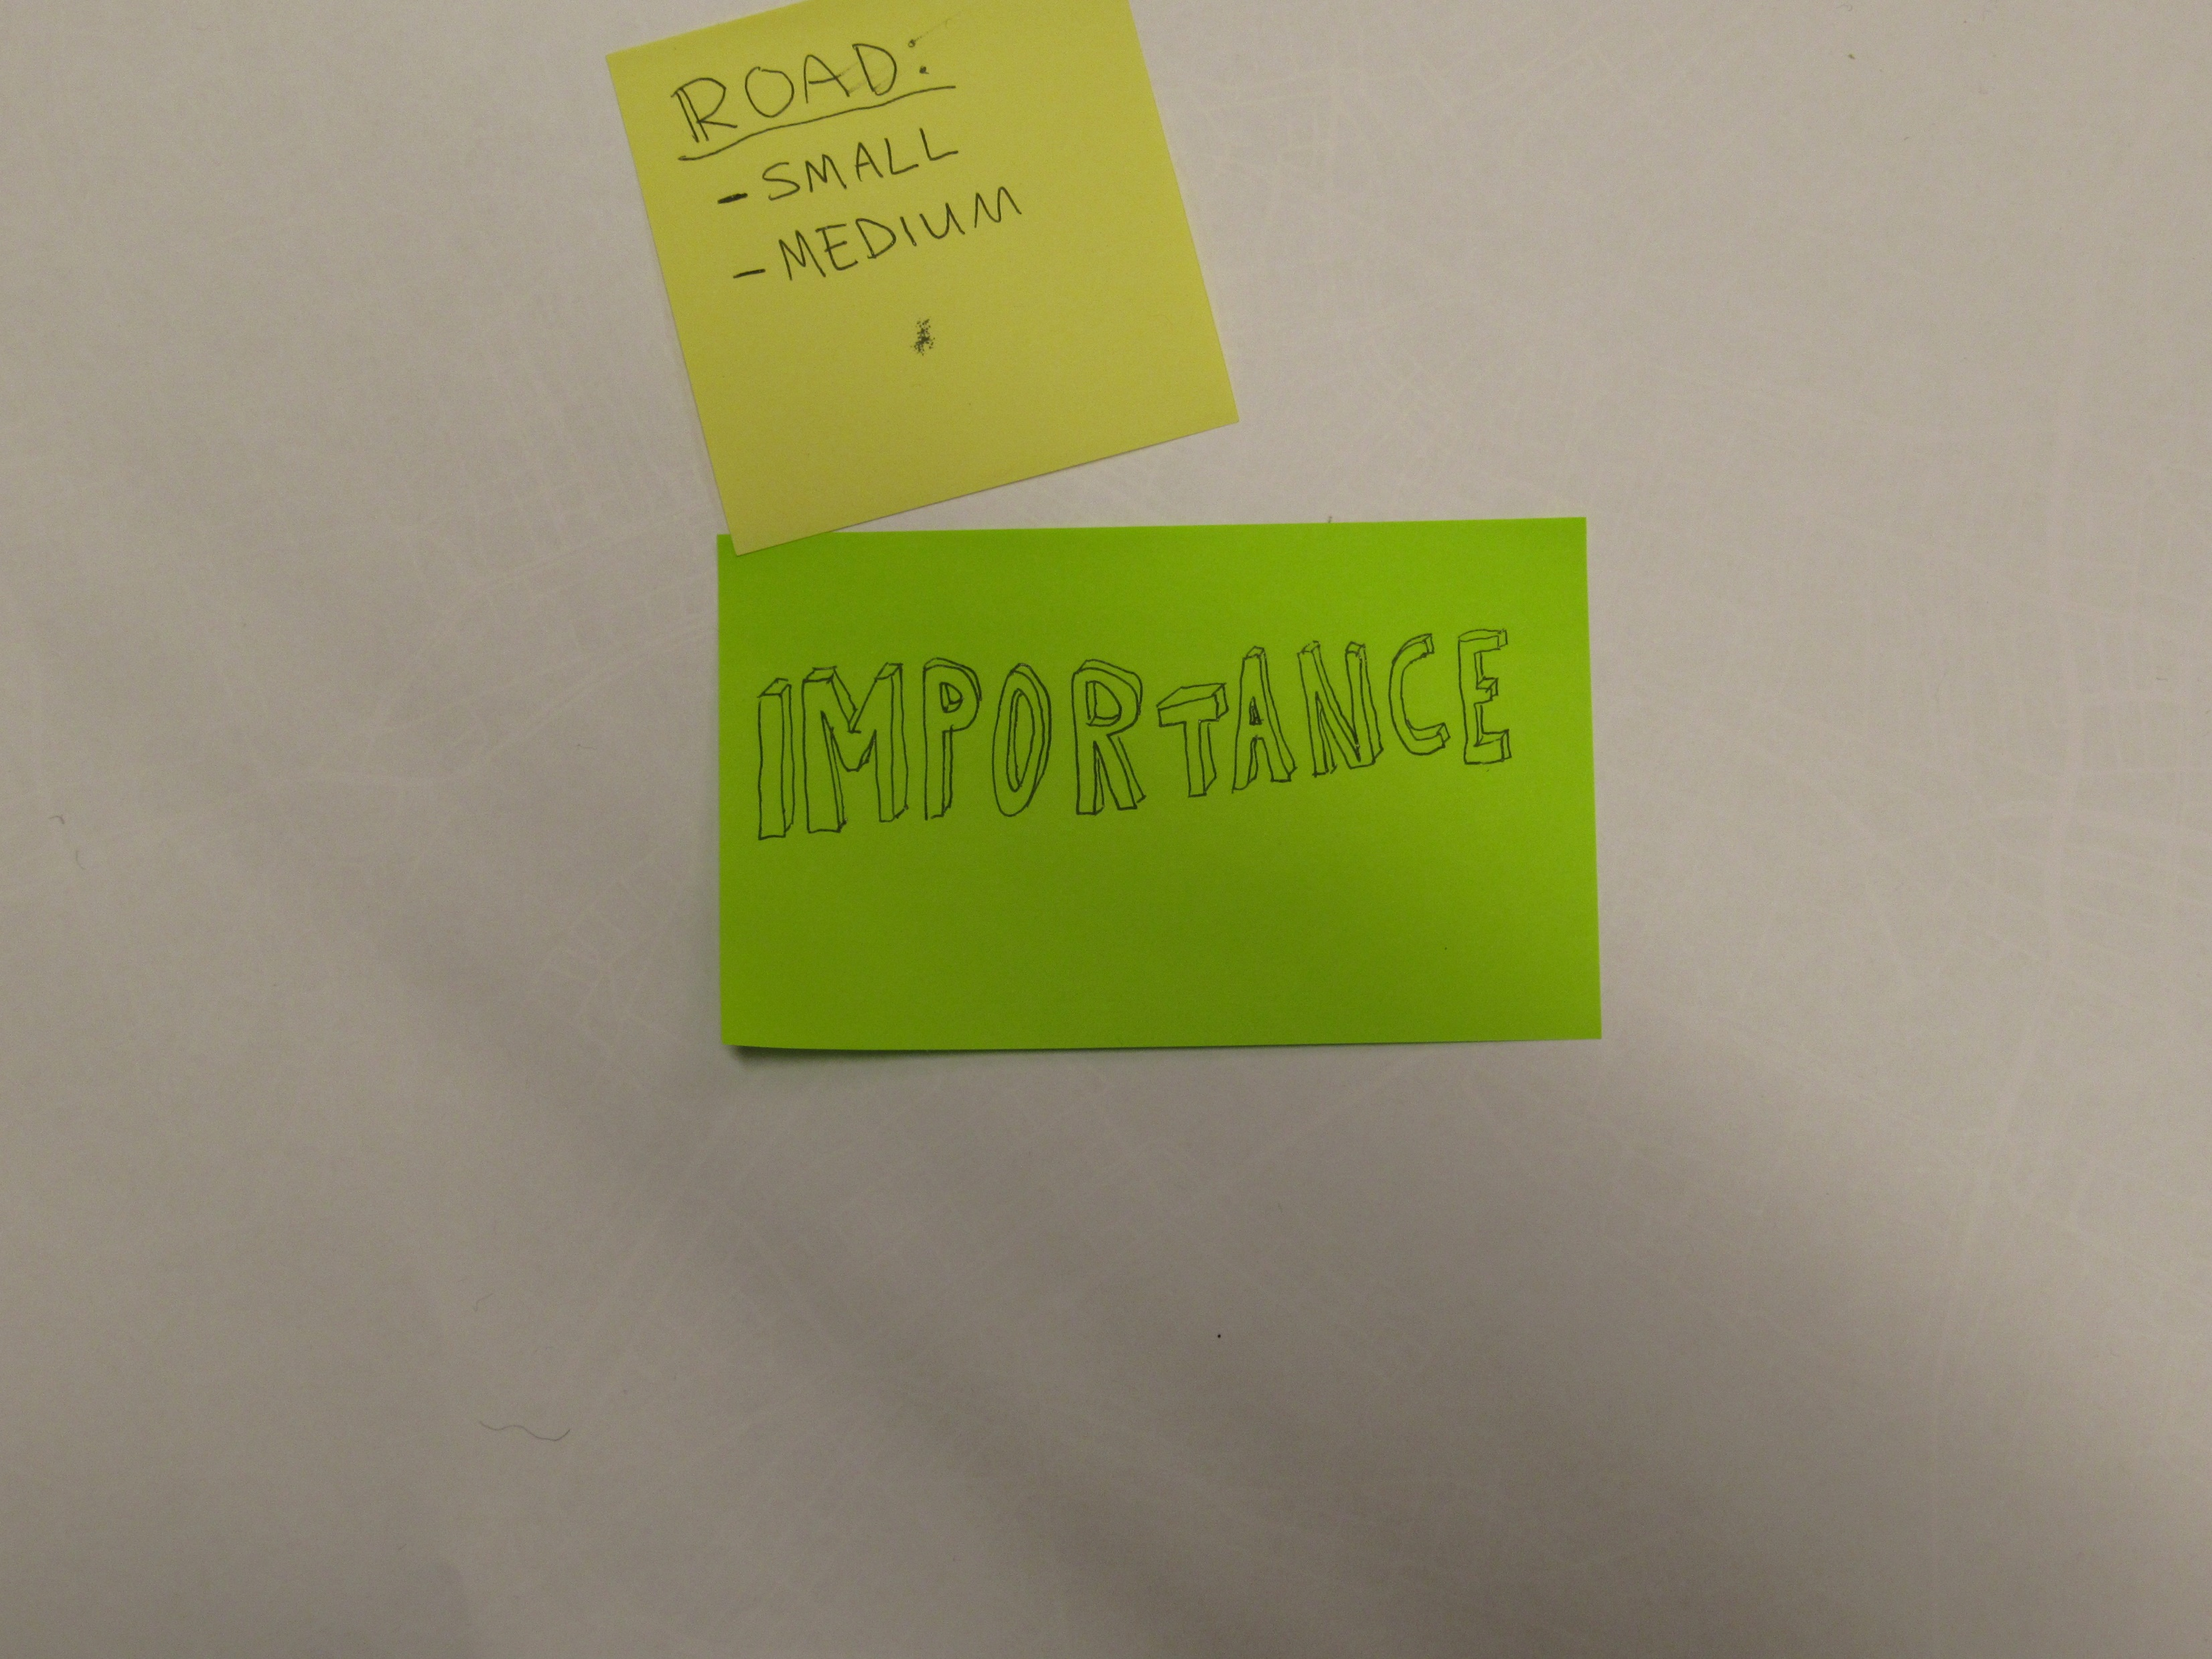 ROAD:
- SMALL
- MEDIUM
IMPORTANCE